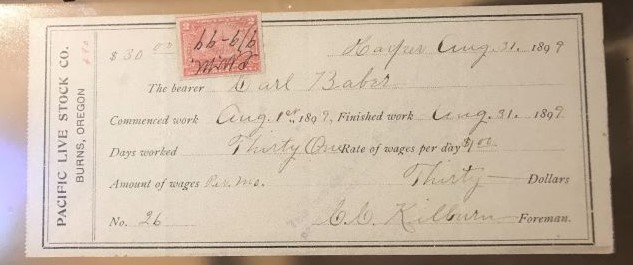 PACIFIC LIVE STOCK CO.
BURNS, OREGON
$ 30 00
Harper Aug. 31. 1899
9/9-99
The bearer Carl Baber
Commenced work Aug. 1st, 1899, Finished work Aug. 31. 1899
Days worked Thirty One Rate of wages per day $1.00
Amount of wages Per. Mo. Thirty Dollars
No. 26 C.C. Kilburn Foreman.